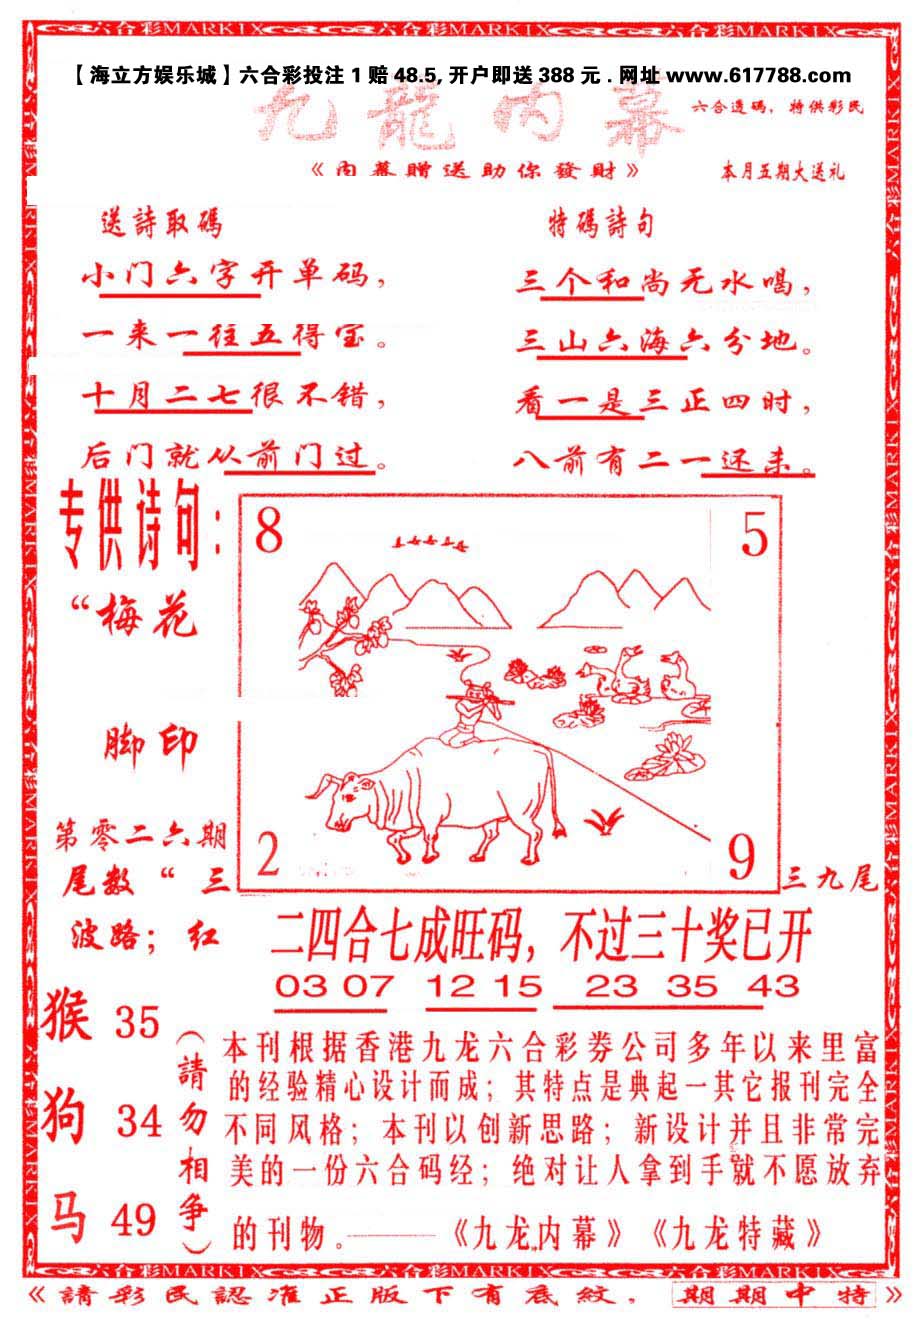 六合彩MARKIX 六合彩MARKIX 六合彩MARKIX
【海立方娱乐城】六合彩投注1赔48.5,开户即送388元.网址www.617788.com
九龍内幕
六合透碼，特供彩民
《内幕贈送助你發財》
本月五期大送礼
送詩取碼
小门六字开单码，
一来一往五得宝。
十月二七很不错，
后门就从前门过。
特碼詩句
三个和尚无水喝，
三山六海六分地。
看一是三正四时，
八前有二一还未。
专供诗句：
“梅花
脚印
8
5
2
9
第零二六期
尾数“三
三九尾
波路；红
二四合七成旺码，不过三十奖已开
03 07 12 15 23 35 43
猴 35
狗 34
马 49
（請勿相争）
本刊根据香港九龙六合彩券公司多年以来里富
的经验精心设计而成；其特点是典起一其它报刊完全
不同风格；本刊以创新思路；新设计并且非常完
美的一份六合码经；绝对让人拿到手就不愿放弃
的刊物。——《九龙内幕》《九龙特藏》
六合彩MARKIX 六合彩MARKIX 六合彩MARKIX
《請彩民認准正版下有底紋，期期中特》